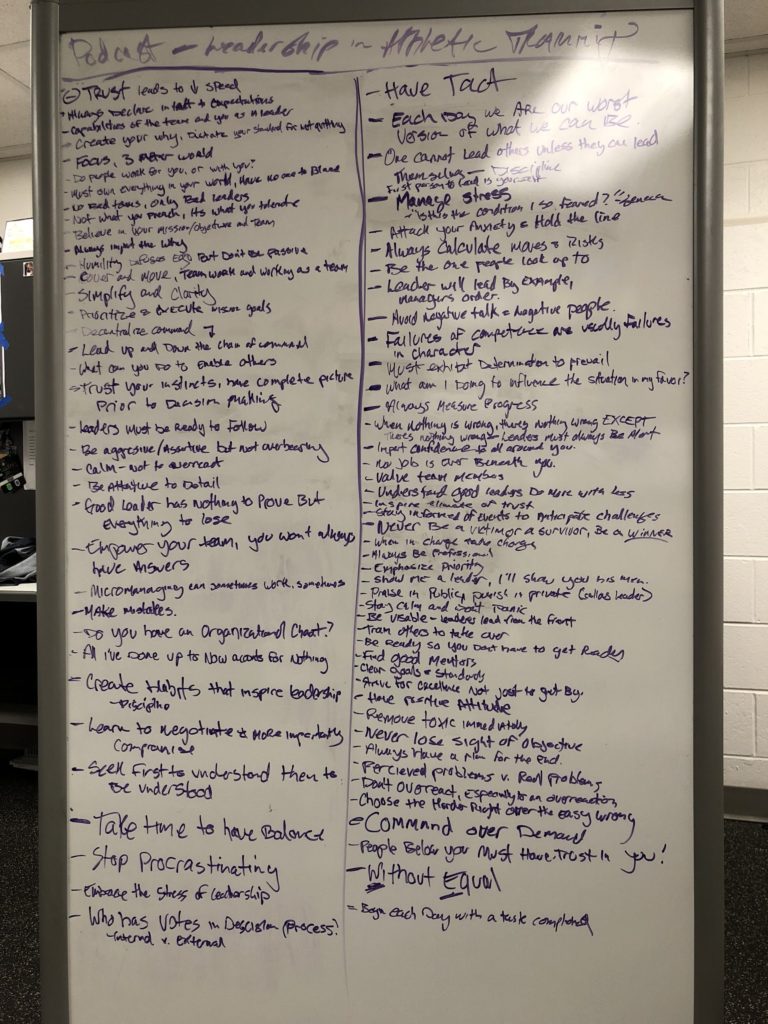 Podcast - Leadership in Athletic Training
Trust leads to ↓ speed
Always Declare in
- Capabilities of the team and you as A leader
- Create your why, your standard for not quitting
- Focus, 3 world
- Do people work for you, or with you?
- Must own everything in your world, Have no one to Blame
- No Bad teams, only Bad leaders
- Not what you Preach, It's what you tolerate
- Believe in your mission/objective and Team
- Always impart the why
- Humility Defuses Ego But Don't Be passive
- Cover and move, Teamwork and working as a team
- Simplify and Clarity
- Prioritize & Execute goals
- Decentralize command
- Lead up and Down the Chain of command
- What can you Do to Enable others
- Trust your instincts, have complete picture
Prior to Decision making
- Leaders must be Ready to Follow
- Be aggressive/Assertive but not overbearing
- Calm - Not to overreact
- Be Attentive to Detail
- Good Leader has Nothing to Prove But
Everything to lose
- Empower your team, you won't always
have Answers
- Micromanaging can sometimes work, sometimes
- Make mistakes.
- Do you have an Organizational Chart?
- All I've Done up to Now accounts for Nothing
- Create Habits that inspire leadership
- Discipline
- Learn to negotiate & more importantly
Compromise
- Seek First to understand then to
Be understood
- Take time to have Balance
- Stop Procrastinating
- Embrace the stress of Leadership
- Who has votes in Descision (Process?
- Internal v. External
- Have Tact
- Each Day we Are our worst
Version of what we can Be.
- One cannot Lead others unless they can lead
Themselves - Discipline
First person to lead is yourself
- Manage stress
- "Is this the condition I so feared?" - Seneca
- Attack your Anxiety & Hold the line
- Always Calculate moves & Risks
- Be the one people look up to
- Leader will lead By Example,
managers order.
- Avoid Negative talk & negative people.
- Failures of competence are usually failures
in character
- Must exhibit Determination to prevail
- What am I Doing to influence the situation in my favor?
- Always Measure Progress
- When nothing is wrong, there's nothing wrong EXCEPT
There's nothing wrong - Leaders must always Be Alert
- Input Confidence to all around you.
- No Job is ever Beneath you.
- Value team members
- Understand good leaders Do More with Less
- Inspire climate of trust
- Stay informed of events to Anticipate challenges
- Never Be a victim or a survivor, Be a WINNER
- When in charge take charge
- Always Be Professional
- Emphasize Priority
- Show me a leader, I'll show you his men.
- Praise in Public, punish in private (callous leader)
- Stay calm and Don't Panic
- Be Visable - Leaders lead from the Front
- Train others to take over
- Be Ready so you Don't have to get Ready
- Find good Mentors
- Clear Goals & Standards
- Strive For excellence Not just to get By.
- Have positive Attitude
- Remove toxic immediately
- Never lose sight of Objective
- Always Have a plan for the End.
- Percieved problems v. Real Problems
- Don't Overreact, Especially to an overreaction
- Choose the Harder Right over the easy wrong
- Command over Demand
- People Below you Must Have Trust in you!
- Without Equal
- Begin each Day with a task completed